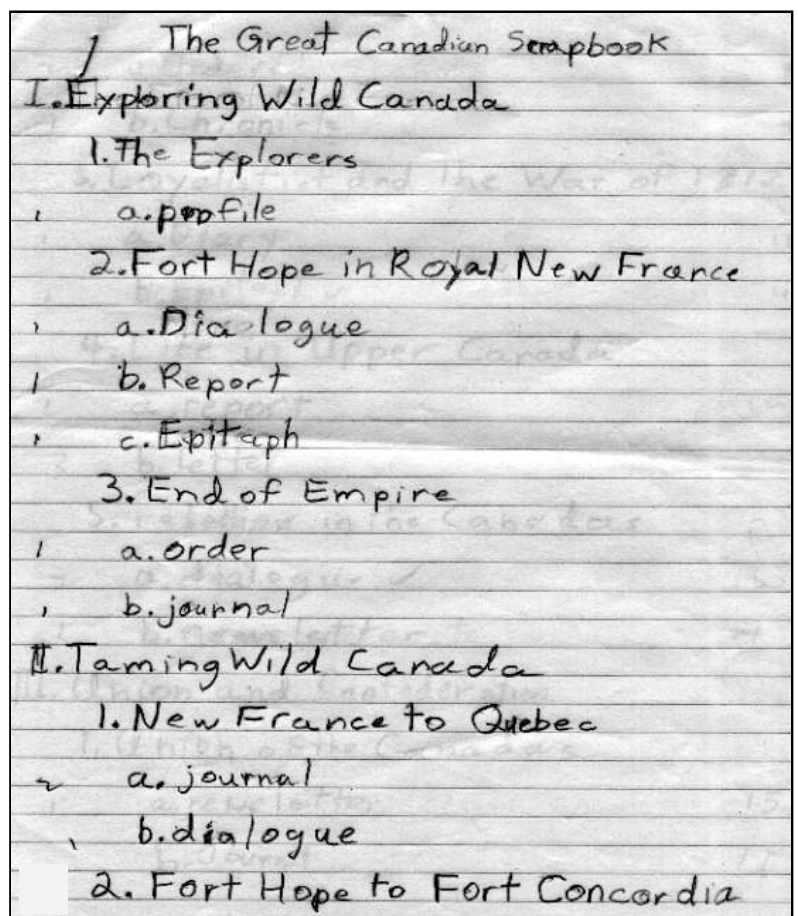 1 The Great Canadian Scrapbook
I. Exploring Wild Canada
1. The Explorers
a. profile
2. Fort Hope in Royal New France
a. Dialogue
b. Report
c. Epitaph
3. End of Empire
a. order
b. journal
II. Taming Wild Canada
1. New France to Quebec
a. journal
b. dialogue
2. Fort Hope to Fort Concordia